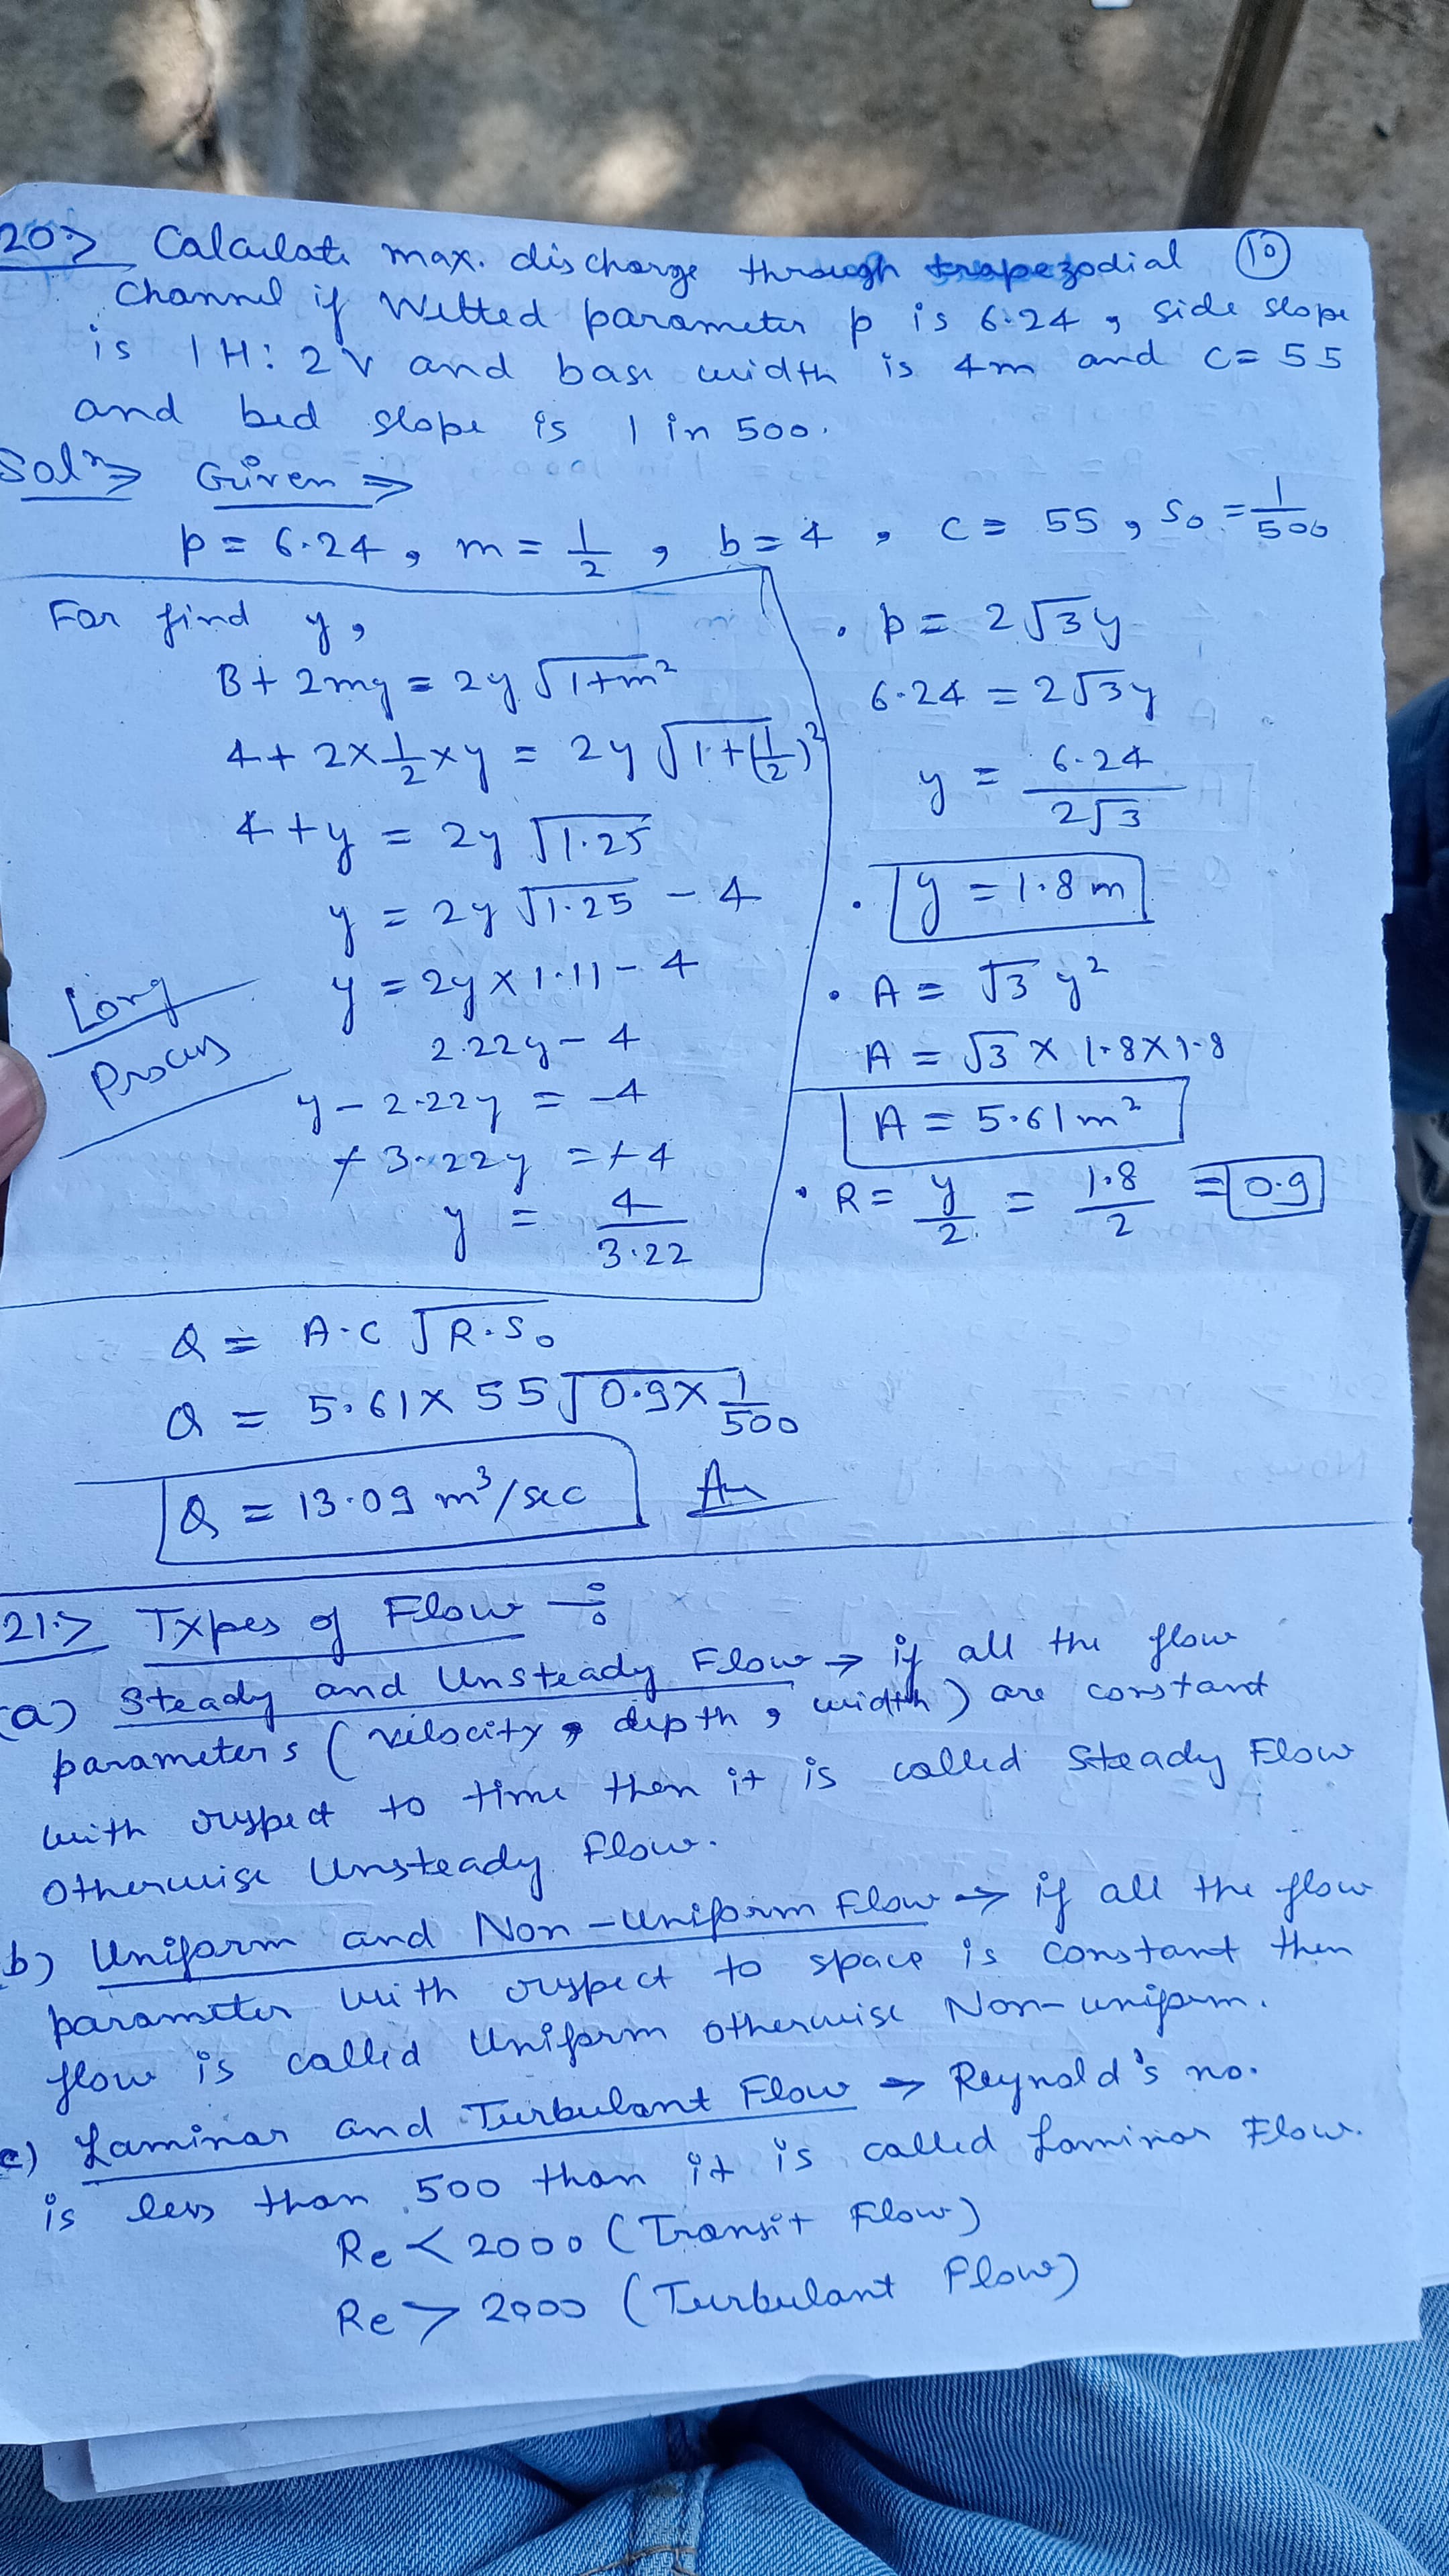 20.> Calculate max. discharge through trapezodial (10)
Channel if Wetted parameter p is 6.24, side slope
is 1H:2V and base width is 4m and C=55
and bed slope is 1 in 500.
Solⁿ⇒ Given ⇒
p = 6.24, m = 1/2, b = 4, c = 55, S₀ = 1/500
For find y,
B + 2my = 2y √1+m²
4 + 2×1/2×y = 2y √1+(1/2)²
4 + y = 2y √1.25
y = 2y √1.25 - 4
y = 2y × 1.11 - 4
2.22y - 4
y - 2.22y = -4
+ 3.22y = + 4
y = 4/3.22
Long
Process
• p = 2√3y
6.24 = 2√3y
y = 6.24/2√3
• y = 1.8 m
• A = √3 y²
A = √3 × 1.8×1.8
A = 5.61 m²
• R = y/2 = 1.8/2 = 0.9
Q = A.C √R.S₀
Q = 5.61 × 55 √0.9×1/500
Q = 13.09 m³/sec Ans
21.> Types of Flow ÷
(a) Steady and Unsteady Flow → if all the flow
parameters (velocity, depth, width) are constant
with respect to time then it is called Steady Flow
otherwise Unsteady Flow.
b) Uniform and Non-Uniform Flow → if all the flow
parameter with respect to space is constant then
flow is called Uniform otherwise Non-uniform.
c) Laminar and Turbulant Flow → Reynold's no.
is less than 500 than it is called Laminar Flow.
Re < 2000 (Transit Flow)
Re > 2000 (Turbulant Flow)